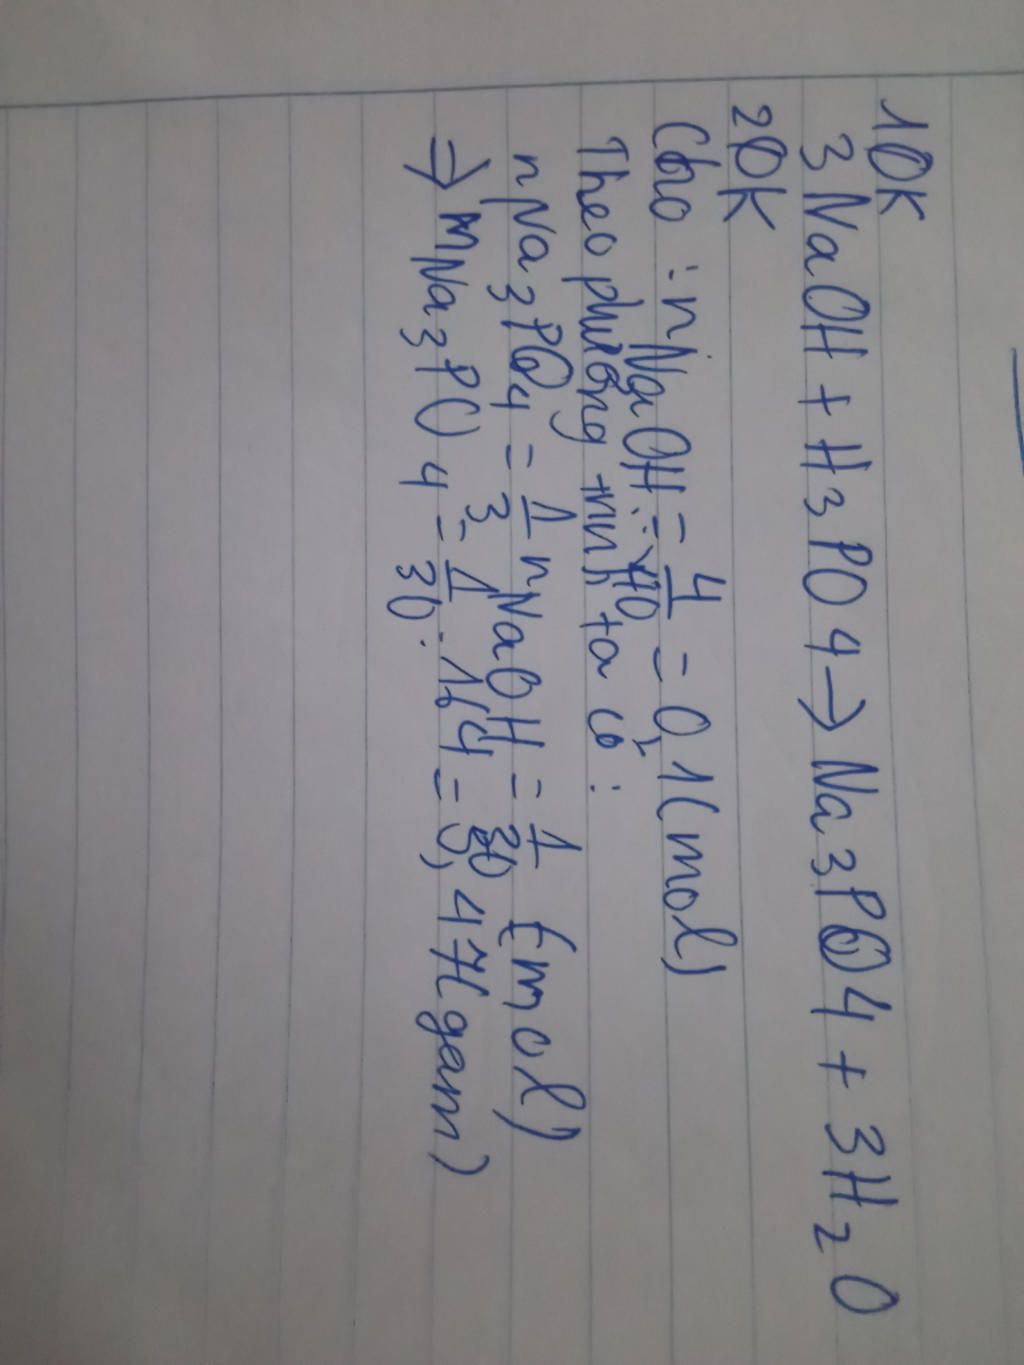 1OK
3NaOH + H3PO4 → Na3PO4 + 3H2O
2OK
Cho : nNaOH = 4/40 = 0,1 (mol)
Theo phương trình ta có :
nNa3PO4 = 1/3 nNaOH = 1/30 (mol)
⇒ mNa3PO4 = 1/30 . 164 = 5,47 (gam)